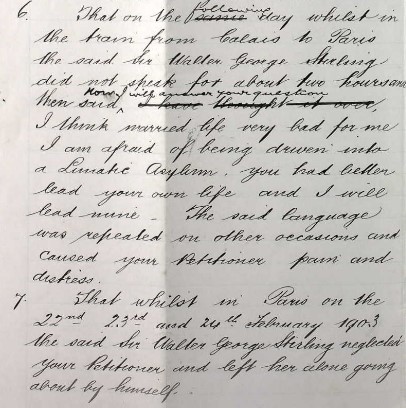 following
6. That on the same day whilst in
the train from Calais to Paris
the said Sir Walter George Stirling
did not speak for about two hours and
Now I will answer your question
then said, I have thought it over,
I think married life very bad for me
I am afraid of being driven into
a Lunatic Asylum. you had better
lead your own life and I will
lead mine - The said language
was repeated on other occasions and
caused your Petitioner pain and
distress.
7. That whilst in Paris on the
22nd 23rd and 24th February 1903
the said Sir Walter George Stirling neglected
your Petitioner and left her alone going
about by himself.